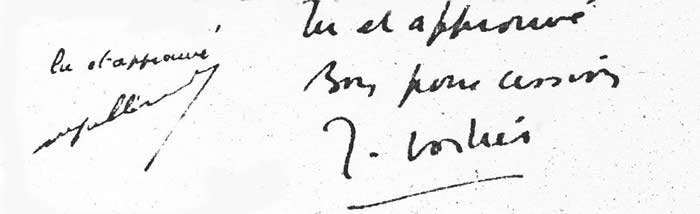 lu et approuvé
Lu et approuvé
Bon pour cession
J.